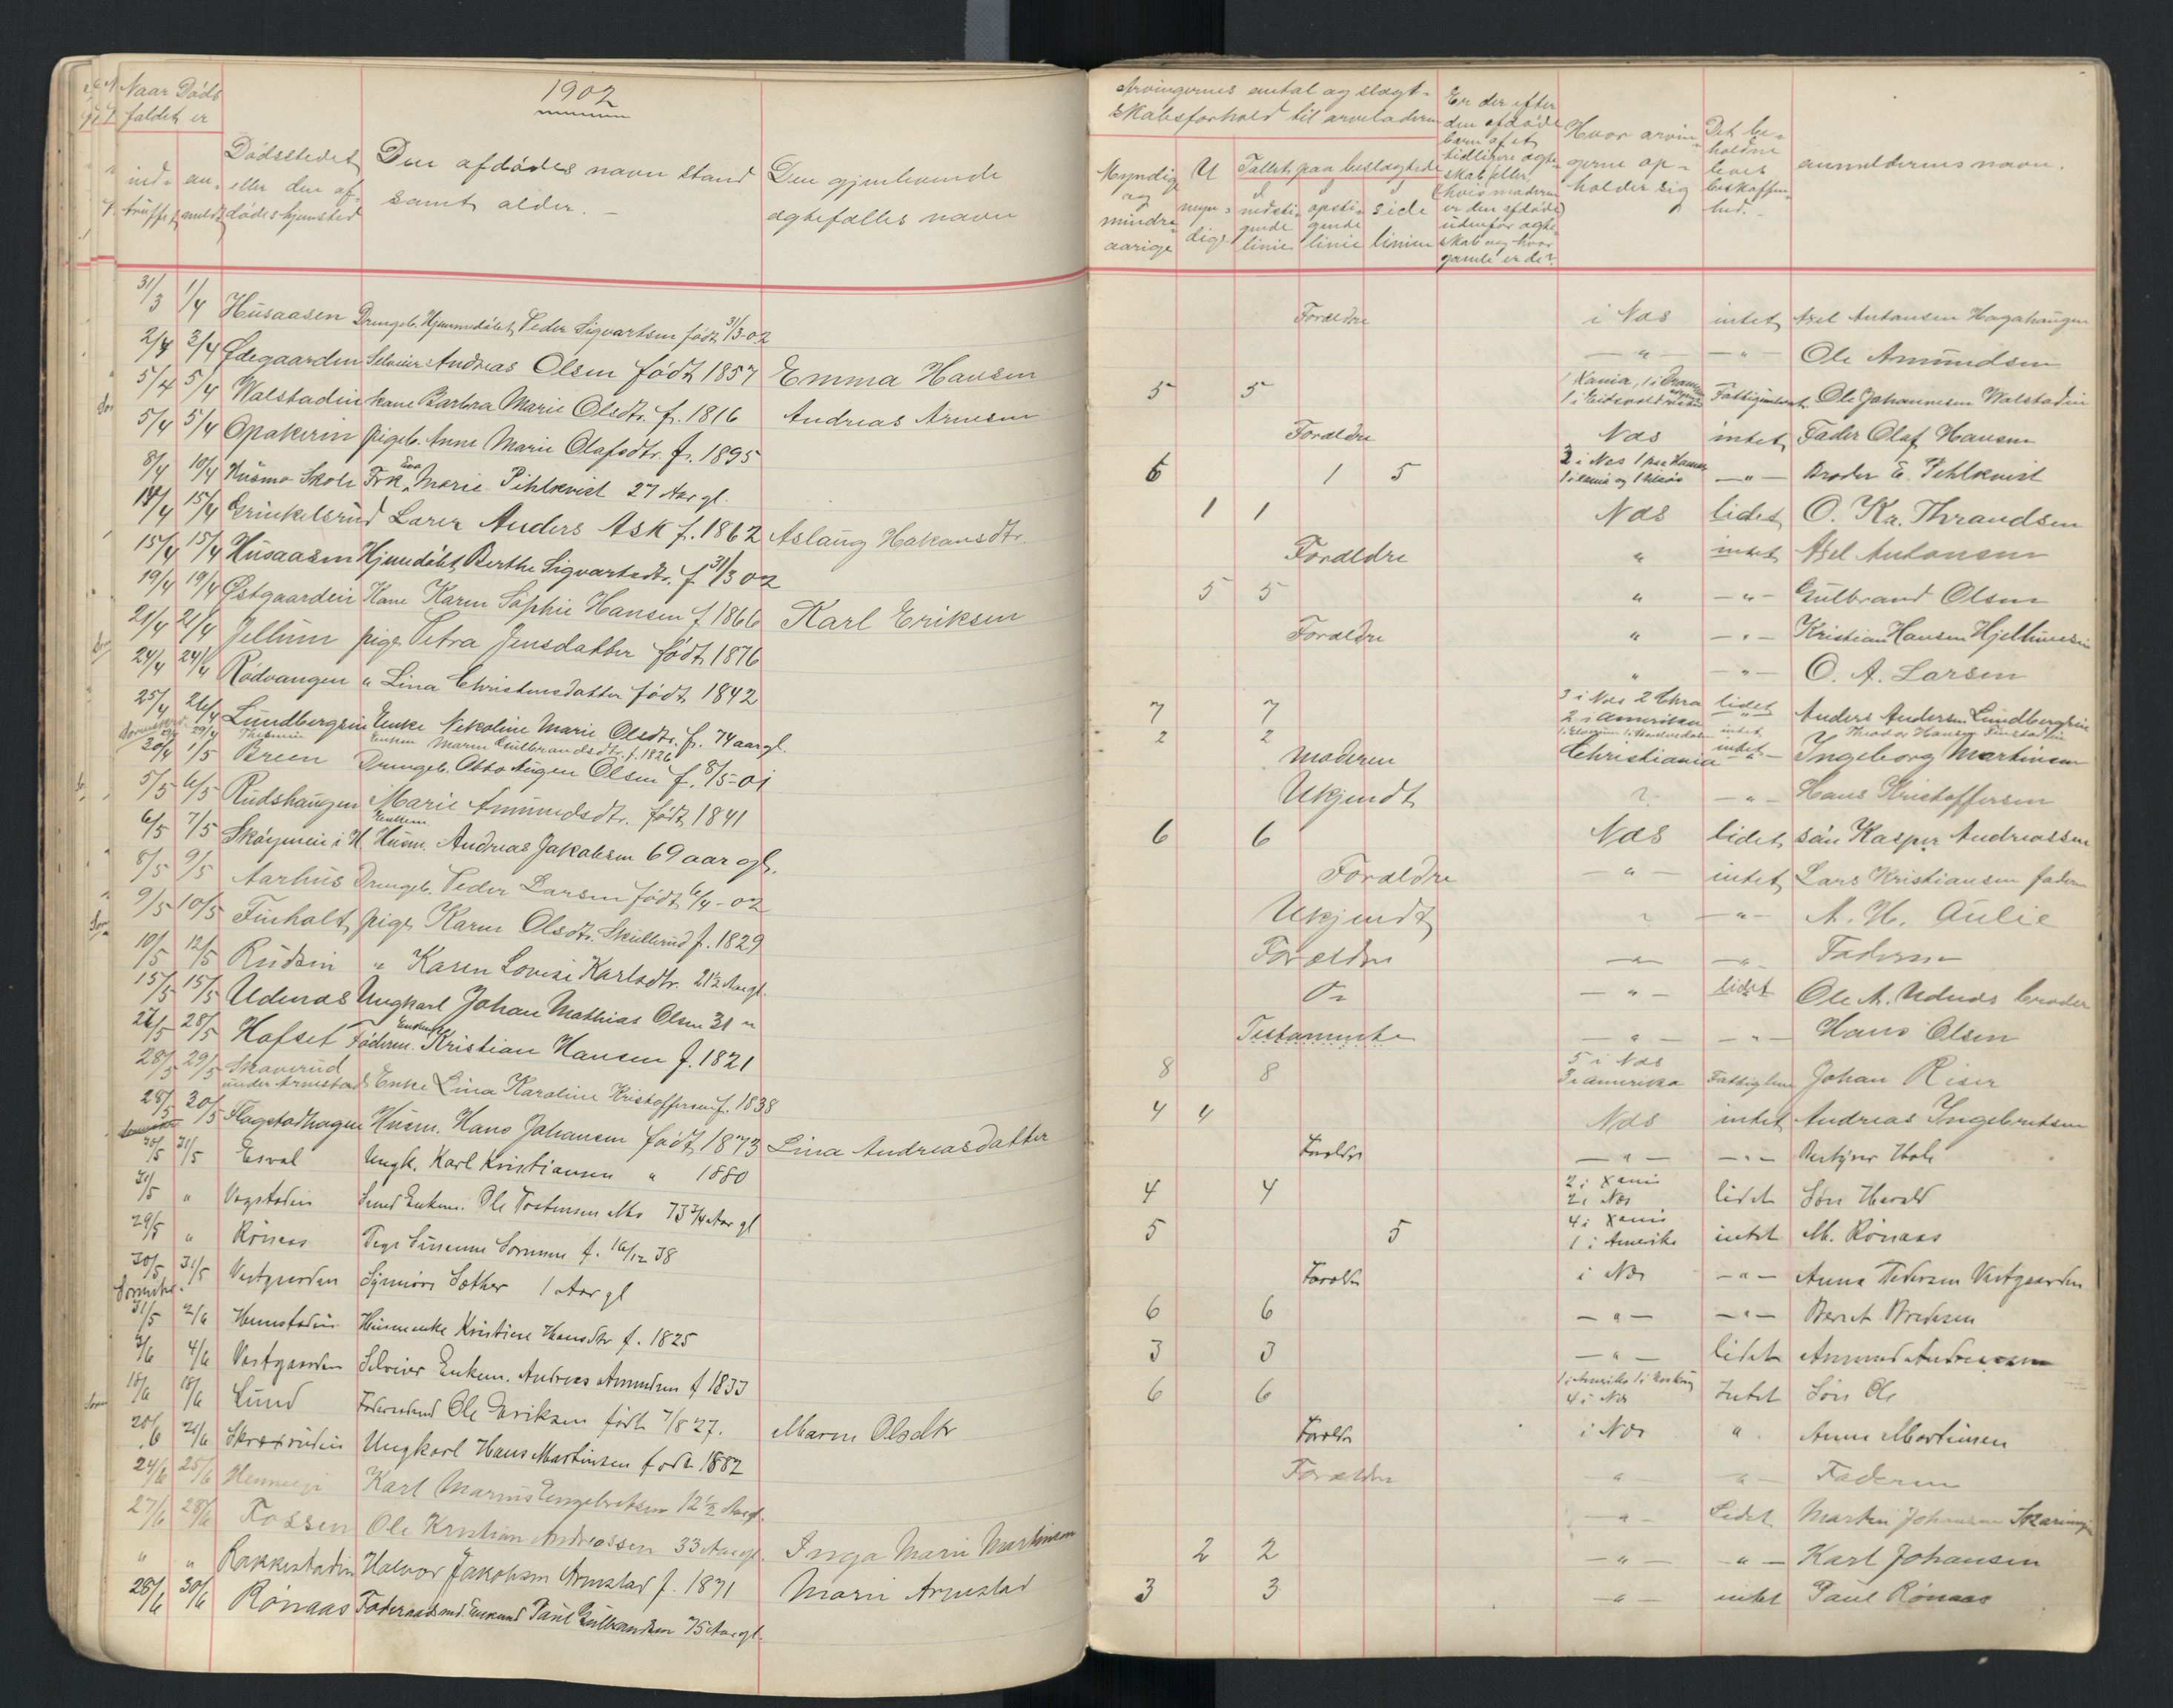 Naar Døds
faldet er
1902
ind- an- Dødsstedet Den afdødes navn stand Den gjenlevende
truffet meldt eller den af- samt alder. ægtefælles navn
dødes hjemsted
Arvingernes antal og slægt- skabsforhold til arveladeren
Myndige og mindre- aarige
U myn- dige
Tallet paa beslægtede
I nedsti- gende linie
I opsti- gende linie
I side linien
Er der efter den afdøde børn af et tidligere ægte- skab eller (hvis moderen er den afdøde) udenfor ægte- skab og hvor gamle er de?
Hvor arvin- gerne op- holder sig
Det be- holdne boets beskaffen- hed.
anmelderens navn.
31/3 1/4 Husaasen Drengeb. Hjemmedøbt Peder Sigvartsen født 31/3-02 Forældre i Næs intet Axel Antonsen Hagahaugen
2/4 3/4 Ødegaarden Selveier Andreas Olsen født 1857 Emma Hansen —"— —"— Ole Amundsen
5/4 5/4 Walstadeie kone Barbra Marie Olsdtr. f. 1816 Andreas Arnesen 5 5 1 Kania, 1 i Drammen 1 i Eidsvold Ole Johannesen Walstadeie
5/4 5/4 Opakerin pigeb. Anne Marie Olafsdtr. f. 1895 Forældre Næs intet Fader Olaf Hansen
8/4 10/4 Husmo Skole Frk. Eva Marie Pihlkvist 27 Aar gl. 6 1 5 —"— Broder E. Pihlkvist
14/4 15/4 Grinkelsrud Lærer Anders Ask f. 1862 Aslaug Hakonsdtr. 1 1 Næs lidet O. Kr. Thrandsen
15/4 15/4 Husaasen Hjemdøbt Berthe Sigvartsdtr. f 31/3 02 Forældre " intet Axel Antonsen
19/4 19/4 Østgaardeie Kone Karen Sophie Hansen f 1866 Karl Eriksen 5 5 " —"— Gulbrand Olsen
21/4 21/4 Jellum pige Petra Jensdatter født 1876 Forældre " —"— Kristian Hansen Hjellumeie
24/4 24/4 Rødvangen " Lina Christensdatter født 1842 " —"— O. A. Larsen
25/4 26/4 Lundbergseie Enke Nekoline Marie Olsdtr. fr. 74 aar gl. 7 7 3 i Næs 2 Chra 2 i Amerika lidet Anders Andersen Lundbergseie
Enken Maren Gulbrandsdtr. f. 1826 2 2 intet Theodor Hansen
30/4 1/5 Breen Drengeb. Otto Augen Olsen f. 8/5-01 Moderen Christiania intet Ingeborg Martinsen
5/5 6/5 Rudshaugen Marie Amundsdtr. født 1841 Ukjendt ? —"— Hans Kristoffersen
6/5 7/5 Skøyneie i H. Husm. Enkem. Andreas Jakobsen 69 aar gl. 6 6 Næs lidet søn Kasper Andreassen
8/5 9/5 Aarhus Drengeb. Peder Larsen født 6/4-02 Forældre —"— intet Lars Kristiansen faderen
9/5 10/5 Finholt pige Karen Olsdtr. Skullerud f. 1829 Ukjendt ? —"— A. H. Aulie
10/5 12/5 Rudseie " Karen Lovise Karlsdtr. 21½ Aar gl. Forældre —"— —"— Faderen
15/5 15/5 Udenæs Ungkarl Johan Mathias Olsen 31 " —"— lidet Ole A. Udnæs broder
26/5 28/5 Hofset Føderm. Enkem. Kristian Hansen f. 1821 Testamente —"— —"— Hans Olsen
28/5 29/5 Skaverud under Arnestad Enke Lina Karoline Kristoffersen f. 1838 8 8 5 i Næs 3 i amerika Fattiglem Johan Riser
28/5 30/5 Flagstadhagen Husm. Hans Johansen født 1873 Lina Andreasdatter 4 4 Næs intet Andreas Ingebretsen
30/5 31/5 Esval Ungk. Karl Kristiansen " 1880 Forældre —"— —"— Bestyrer
31/5 " Vogstadeie Smed Enkem. Ole Tostensen Mo 73¾ Aar gl 4 4 2 i Xania 2 i Næs lidet Søn Harald
29/5 " Rønaas Pige Susanne f. 16/12 38 5 5 4 i Xania 1 i Amerika intet M. Rønaas
30/5 31/5 Vestgaarden Synnøve Sæther 1 Aar gl Forældre i Næs —"— Anna Pedersen Vestgaarden
31/5 2/6 Henstadeie Husmenke Kristine Hansdtr f. 1825 6 6 —"— —"— Berit Bredesen
3/6 4/6 Vestgaarden Selveier Enkem. Andreas Amundsen f 1833 3 3 —"— lidet Amund Andreassen
18/6 18/6 Lund Føderaadsmd Ole Eriksen født 7/8 27. Maren Olsdtr 6 6 4 i Næs Intet Søn Ole
20/6 21/6 Ungkarl Hans Martinsen født 1882 Forældre i Næs " Anne Martinsen
24/6 25/6 Karl Marius Engebretsen 12½ Aar gl. Forældre " " Faderen
27/6 28/6 Fossen Ole Kristian Andreassen 33 Aar gl. Inga Marie Martinsen —"— Lidet Martin Johansen
" " Rakkestadeie Halvor Jakobsen Arnstad f. 1871 Marie Arnestad 2 2 —"— —"— Karl Johansen
28/6 30/6 Rønaas Føderaadsmd. Enkemd Paul Gulbrandsen 75 Aar gl. 3 3 —"— intet Paul Rønaas